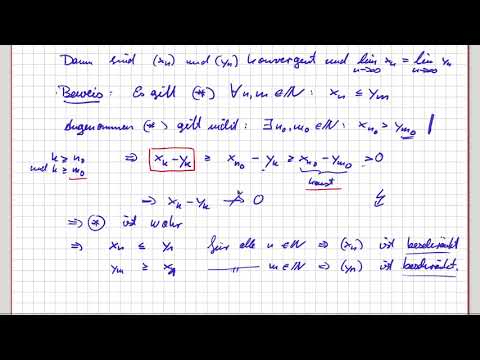 Dann sind (xₙ) und (yₙ) konvergent und lim_{n→∞} xₙ = lim_{n→∞} yₙ
Beweis: Es gilt (*) ∀ n,m ∈ ℕ : xₙ ≤ yₘ
Angenommen (*) gilt nicht: ∃ n₀, m₀ ∈ ℕ : x_{n₀} > y_{m₀}
k ≥ n₀ und k ≥ m₀ ⇒ x_k − y_k ≥ x_{n₀} − y_k ≥ x_{n₀} − y_{m₀} > 0
konst
→ x_k − y_k ↛ 0 ↯
⇒ (*) ist wahr
⇒ xₙ ≤ y₁ für alle n ∈ ℕ ⇒ (xₙ) ist beschränkt
yₘ ≥ x₁ —〃— m ∈ ℕ ⇒ (yₙ) ist beschränkt.